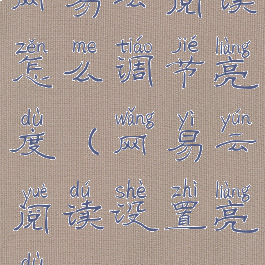 网易云阅读
zěn me tiáo jié liàng
怎么调节亮
dù wǎng yì yún
度（网易云
yuè dú shè zhì liàng
阅读设置亮
dù